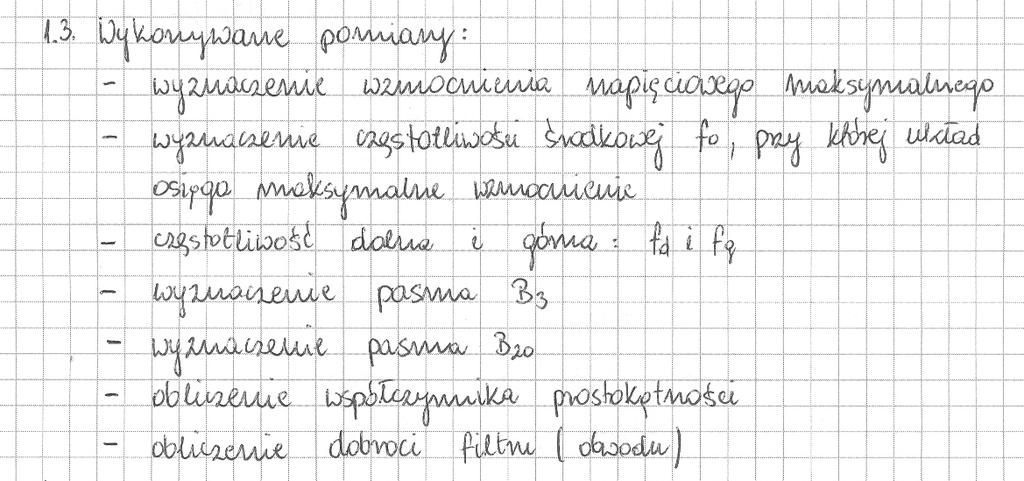 1.3. Wykonywane pomiary:
- wyznaczenie wzmocnienia napięciowego maksymalnego
- wyznaczenie częstotliwości środkowej fo, przy której układ
osięga maksymalne wzmocnienie
- częstotliwość dolna i górna: fd i fg
- wyznaczenie pasma B3
- wyznaczenie pasma B20
- obliczenie współczynnika prostokątności
- obliczenie dobroci filtru (obwodu)